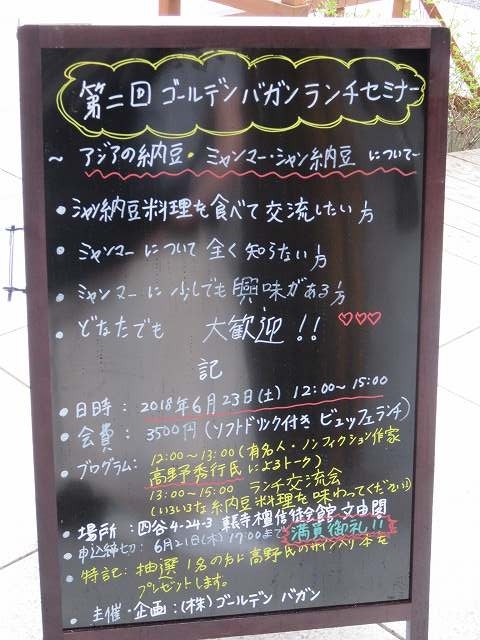 第二回 ゴールデン バガン ランチセミナー
~ アジアの納豆・ミャンマー・シャン納豆 について~
• シャン納豆料理を食べて 交流したい 方
• ミャンマー について 全く知らない 方
• ミャンマー に 少しでも興味がある方
• どなたでも 大歓迎!! ♡♡♡
記
• 日時 : 2018年6月23日(土) 12:00~15:00
• 会費 : 3500円(ソフトドリンク付き ビュッフェランチ)
• プログラム: 12:00~13:00(有名人・ノンフィクション作家
高野秀行氏 によるトーク)
13:00~15:00 ランチ交流会
(いろいろな納豆料理を味わってください)
• 場所 : 四谷4-24-3 東長寺檀信徒会館 文由閣
• 申込締切: 6月21日(木)17:00まで 満員御礼!!
• 特記: 抽選1名の方に高野氏のサイン入り本を
プレゼントします。
• 主催・企画:(株)ゴールデン バガン